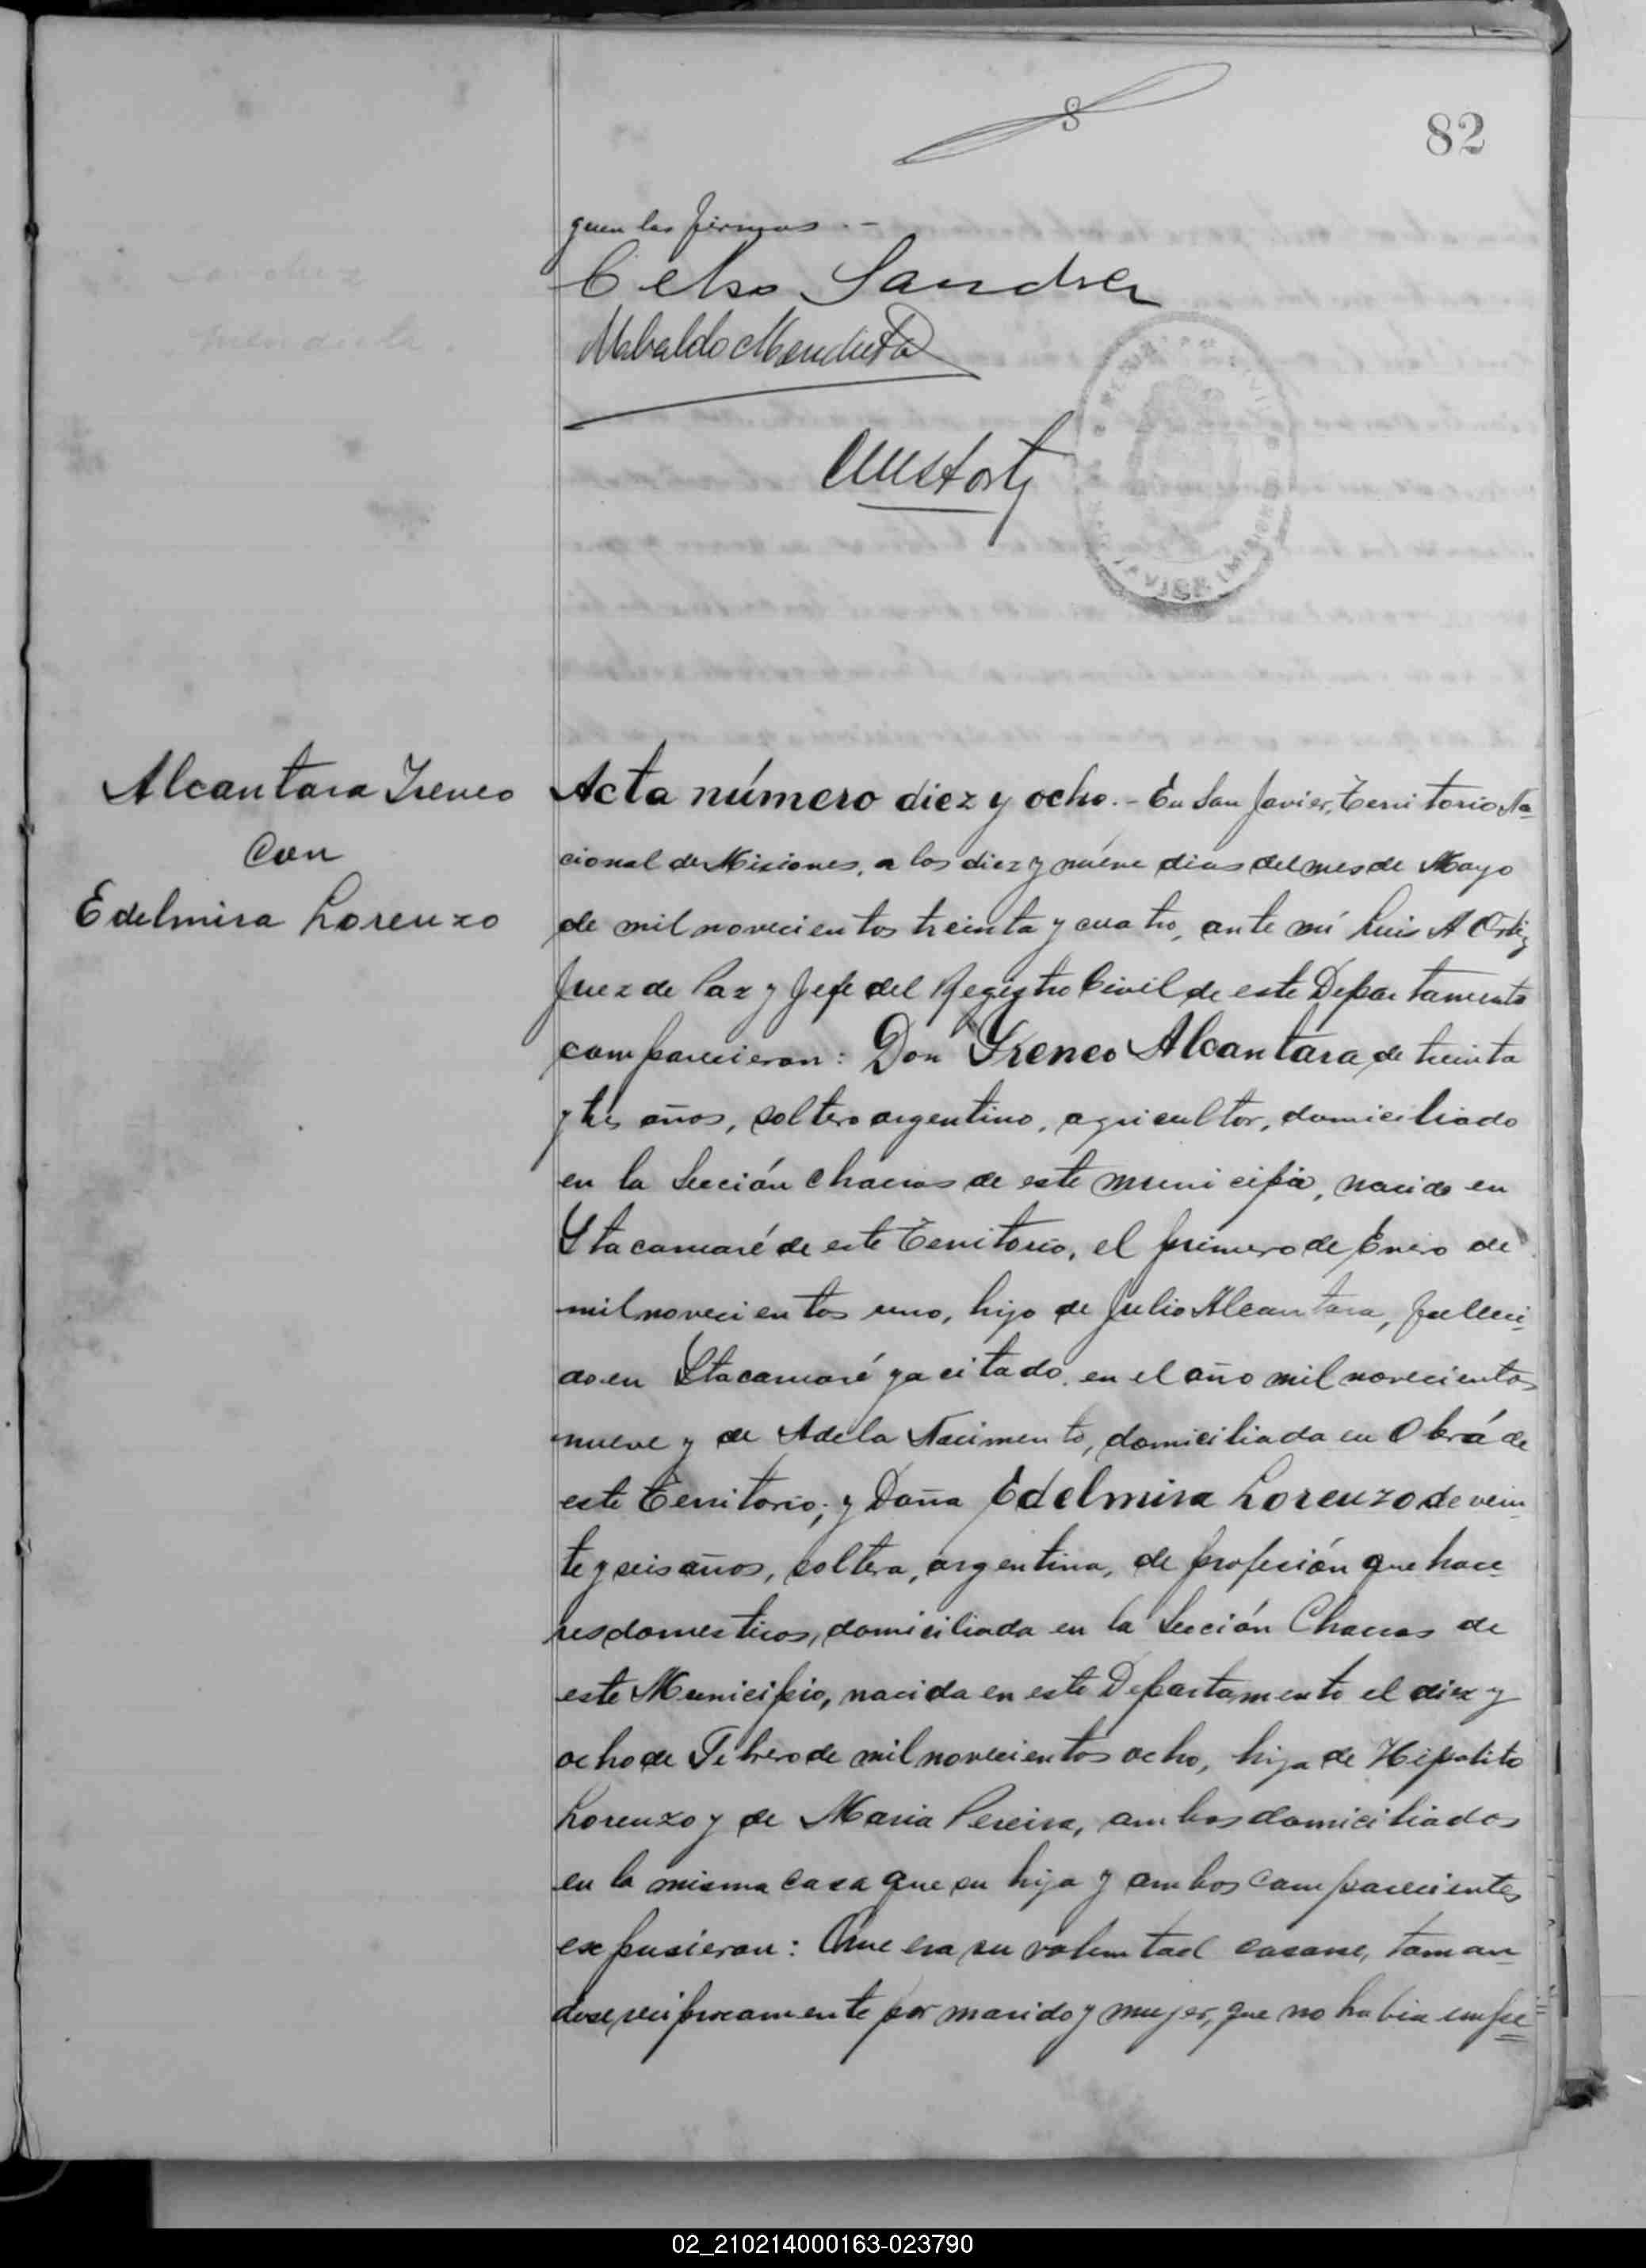 8
82
guen las firmas. -
Celso Sanchez
Ubaldo Mendieta
Sanchez
Mendieta.
Alcantara Ireneo
con
Edelmira Lorenzo
Acta número diez y ocho.- En San Javier, Territorio Na-
cional de Misiones, a los diez y nueve dias del mes de Mayo
de mil novecientos treinta y cuatro, ante mi Luis A Ortiz
Juez de Paz y Jefe del Registro Civil de este Departamento
comparecieron: Don Ireneo Alcantara, de treinta
y tres años, soltero argentino, agricultor, domiciliado
en la Sección chacras de este municipio, nacido en
Itacaruaré de este Territorio, el primero de Enero de
mil novecientos uno, hijo de Julio Alcantara, falleci-
do en Itacaruaré ya citado, en el año mil novecientos
nueve y de Adela Nacimento, domiciliada en Oberá de
este Territorio; y Doña Edelmira Lorenzo de vein-
te y seis años, soltera, argentina, de profesión que hace-
res domesticos, domiciliada en la Sección Chacras de
este Municipio, nacida en este Departamento el diez y
ocho de Febrero de mil novecientos ocho, hija de Hipolito
Lorenzo y de Maria Pereira, ambos domiciliados
en la misma casa que su hija y ambos comparecientes
expusieron: Que era su voluntad casarse, toman-
dose reciprocamente por marido y mujer, que no habia impe=
02_210214000163-023790